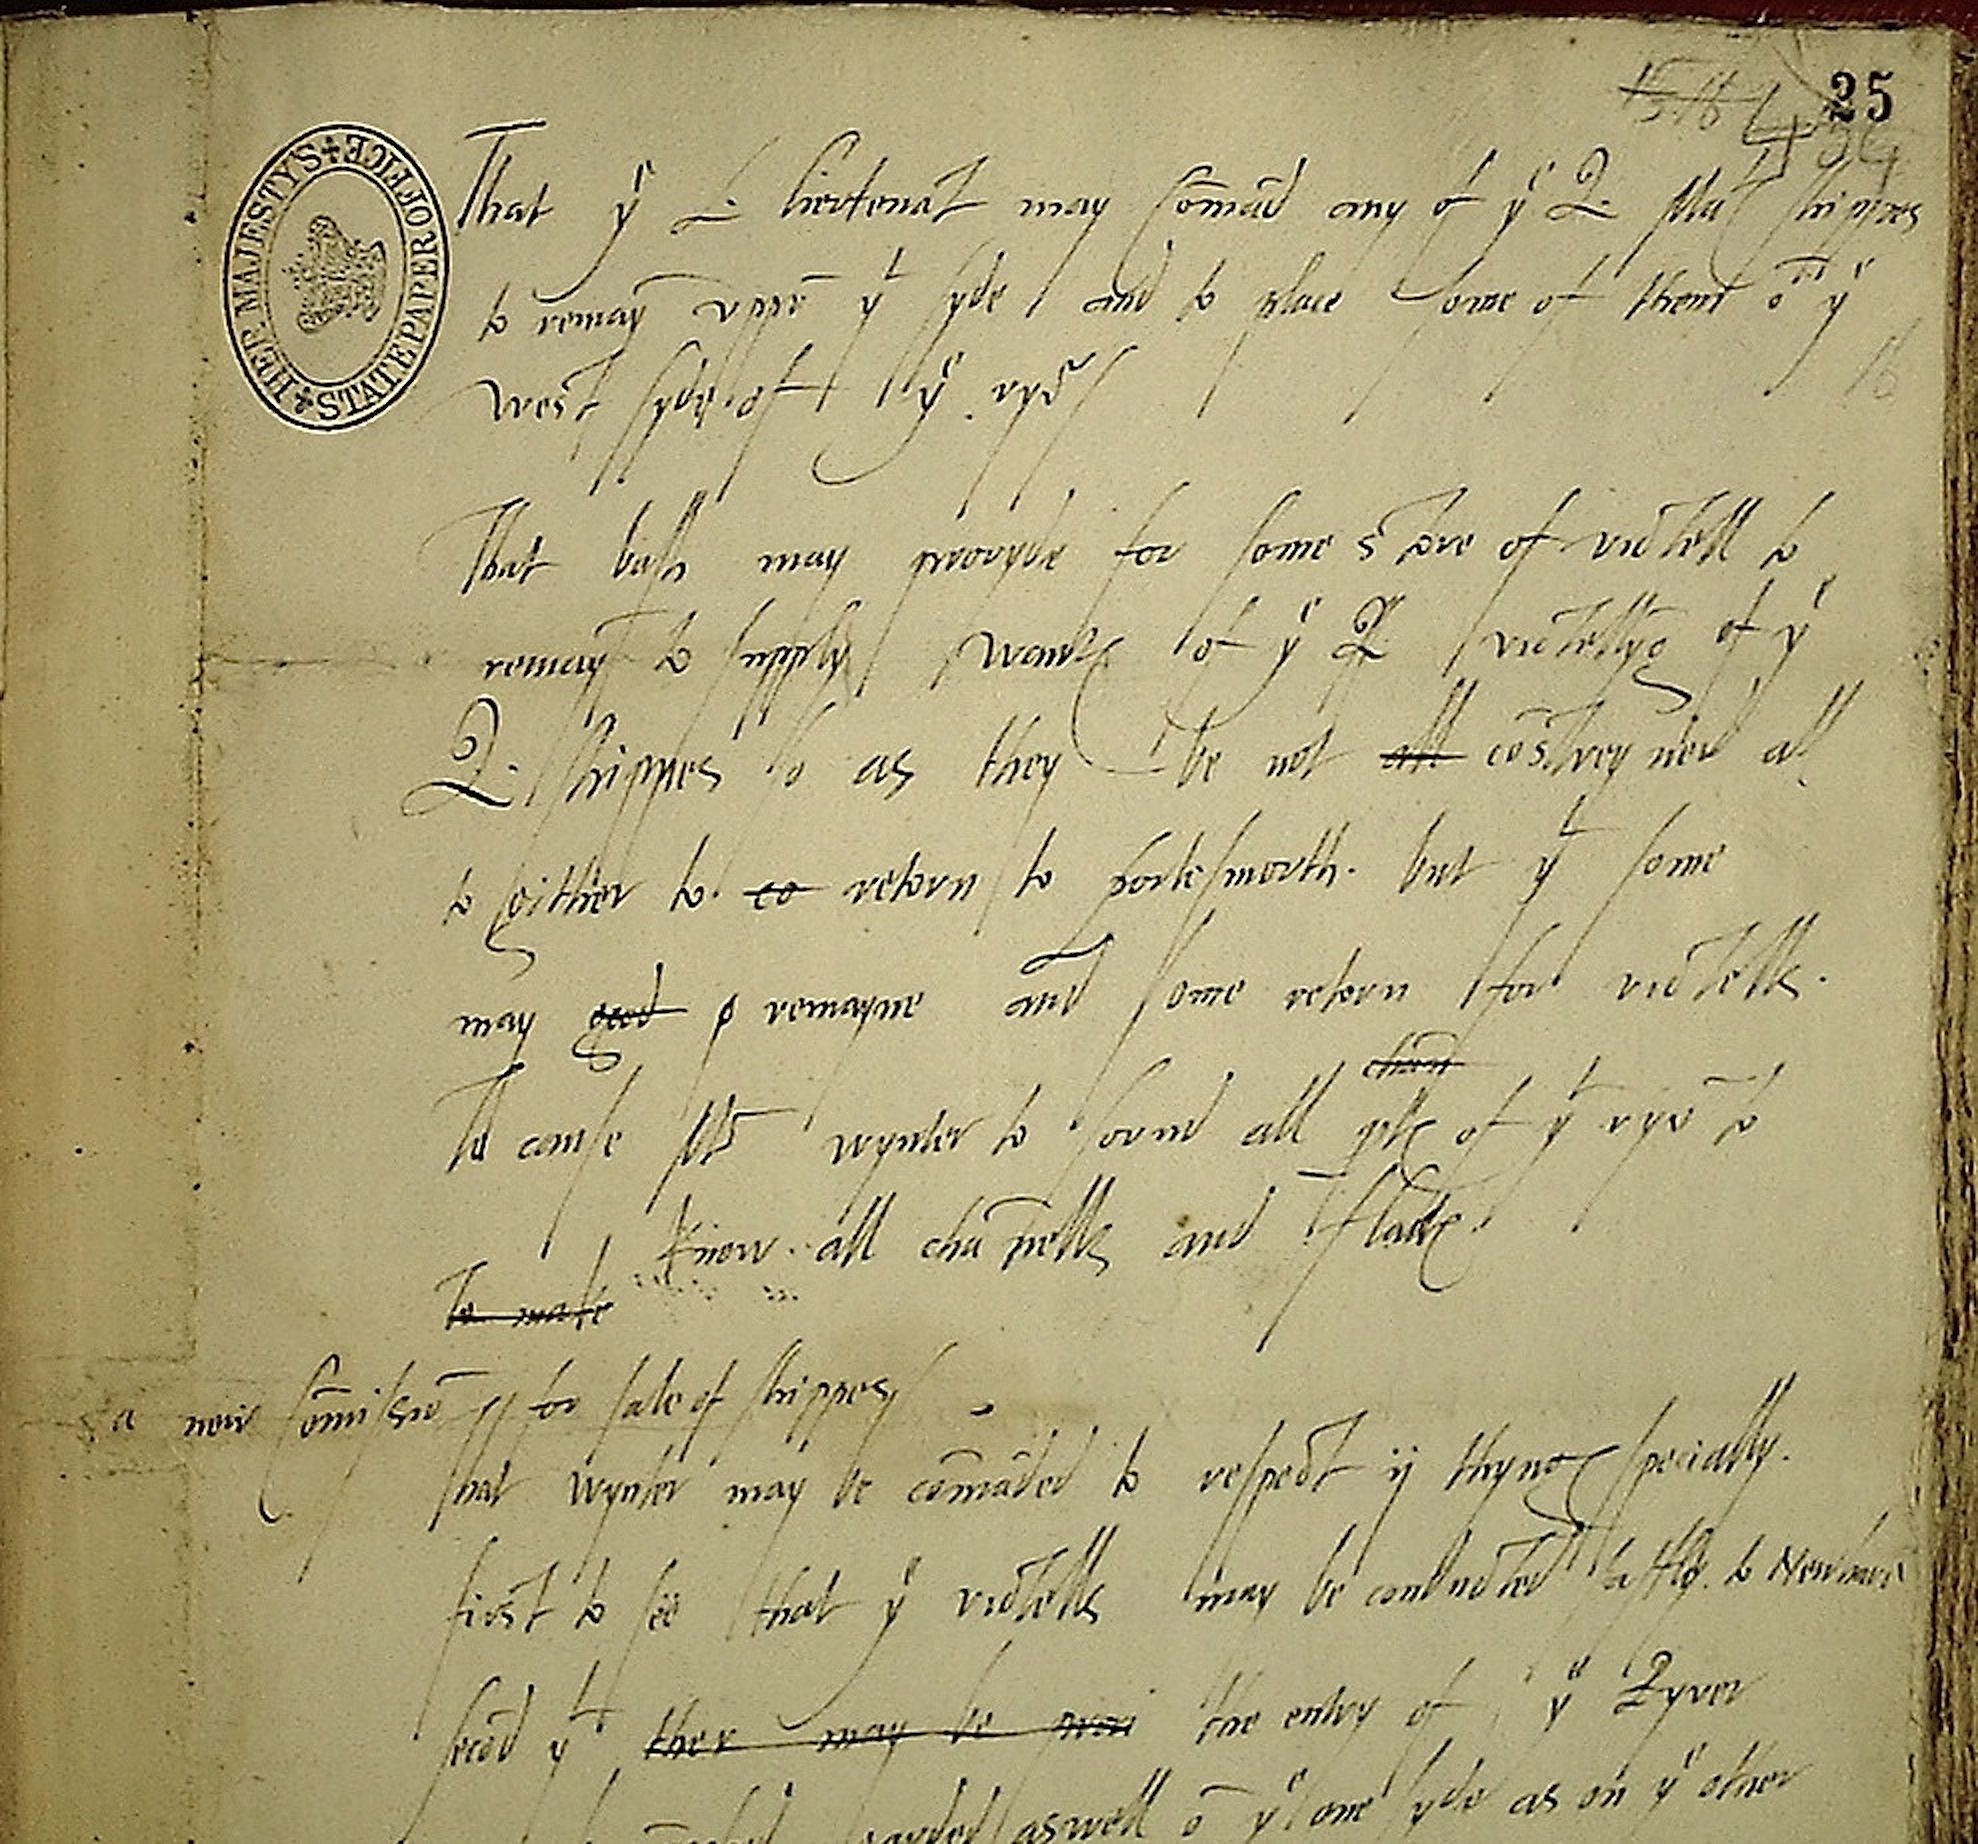 25
HER MAJESTY'S STATE PAPER OFFICE
That yͤ L. Lieutenāt may cōmād any of yͤ Q. shippes
to remayn uppō yᵗ syde and to place some of them ō yͤ
west syde of yͤ ryvᵉʳ
That both may provyde for some store of victell to
remayn to supply yͤ wantꝭ of yͤ Q. victellyng of yͤ
Q. shippes so as they be not all cōstreyned all
to gither to co retorn to portesmouth. but yᵗ some
may good remayne and some retorn for victells.
chan
To cause Mr wynter to sound all ꝑtꝭ of yᵗ ryvᵉʳ to
know all chānells and flattꝭ.
To make
a new Cōmissiō for sale of shippes
That wynter may be cōmāded to respect ij thyngꝭ specially.
first to see that yͤ victells may be conducted safly to Newhavē
secōd yᵗ ther may be provi the entry of yͤ Ryver
garded aswell ō yͤ one syde as on yͤ other